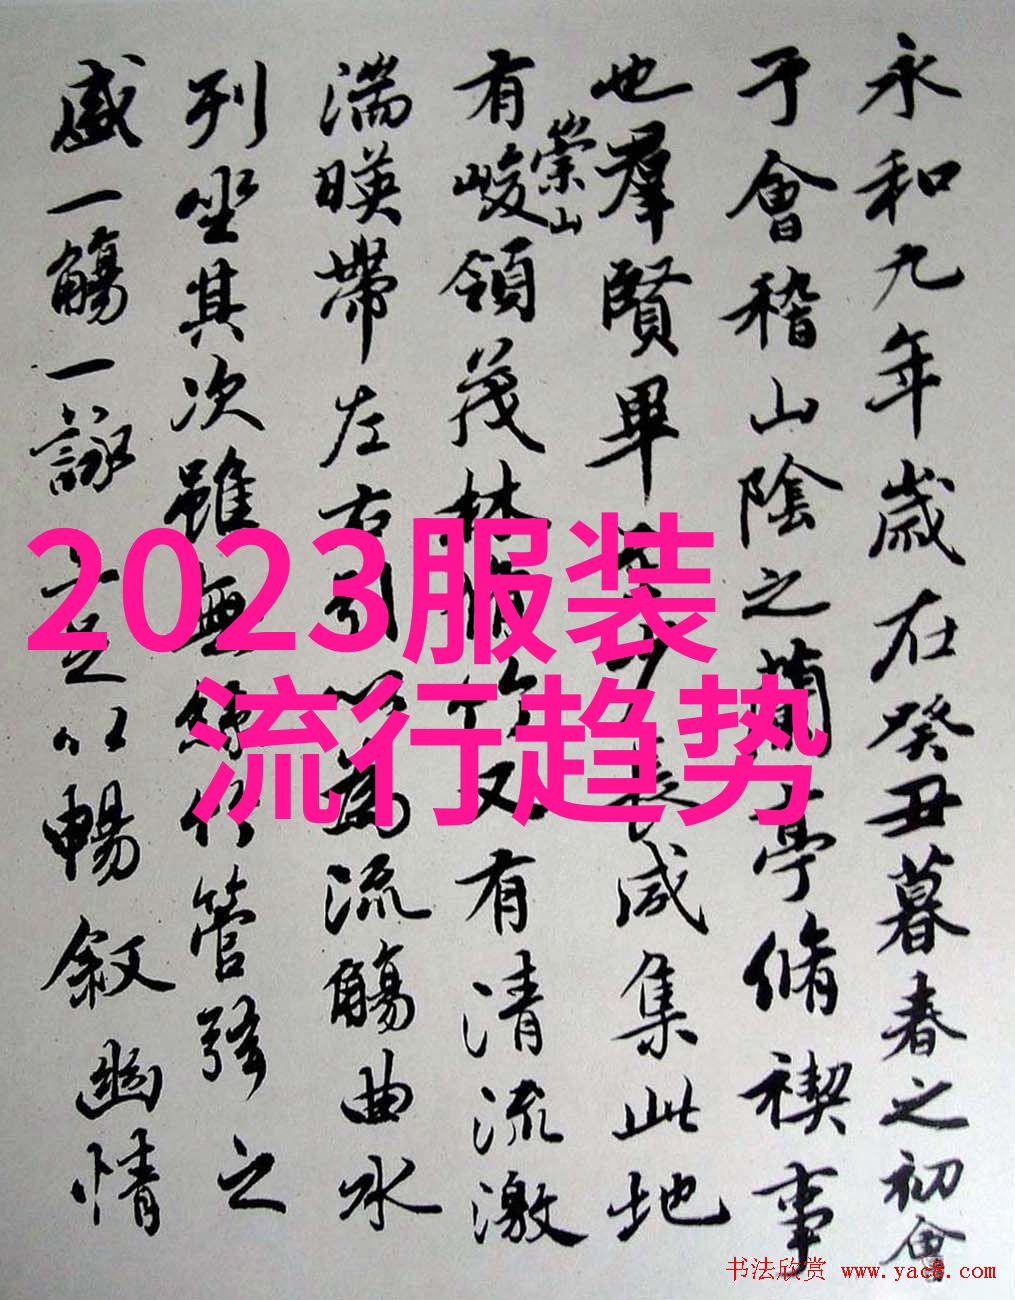 2023服装
流行趋势
永和九年歲在癸丑暮春之初會
于會稽山陰之蘭亭脩禊事
也羣賢畢少長咸集此地
有崇山峻領茂林脩竹又有清流激
湍暎帶左右引以為流觴曲水
列坐其次雖無絲竹管弦之
盛一觴一詠足以暢敘幽情
书法欣赏 www.yac8.com